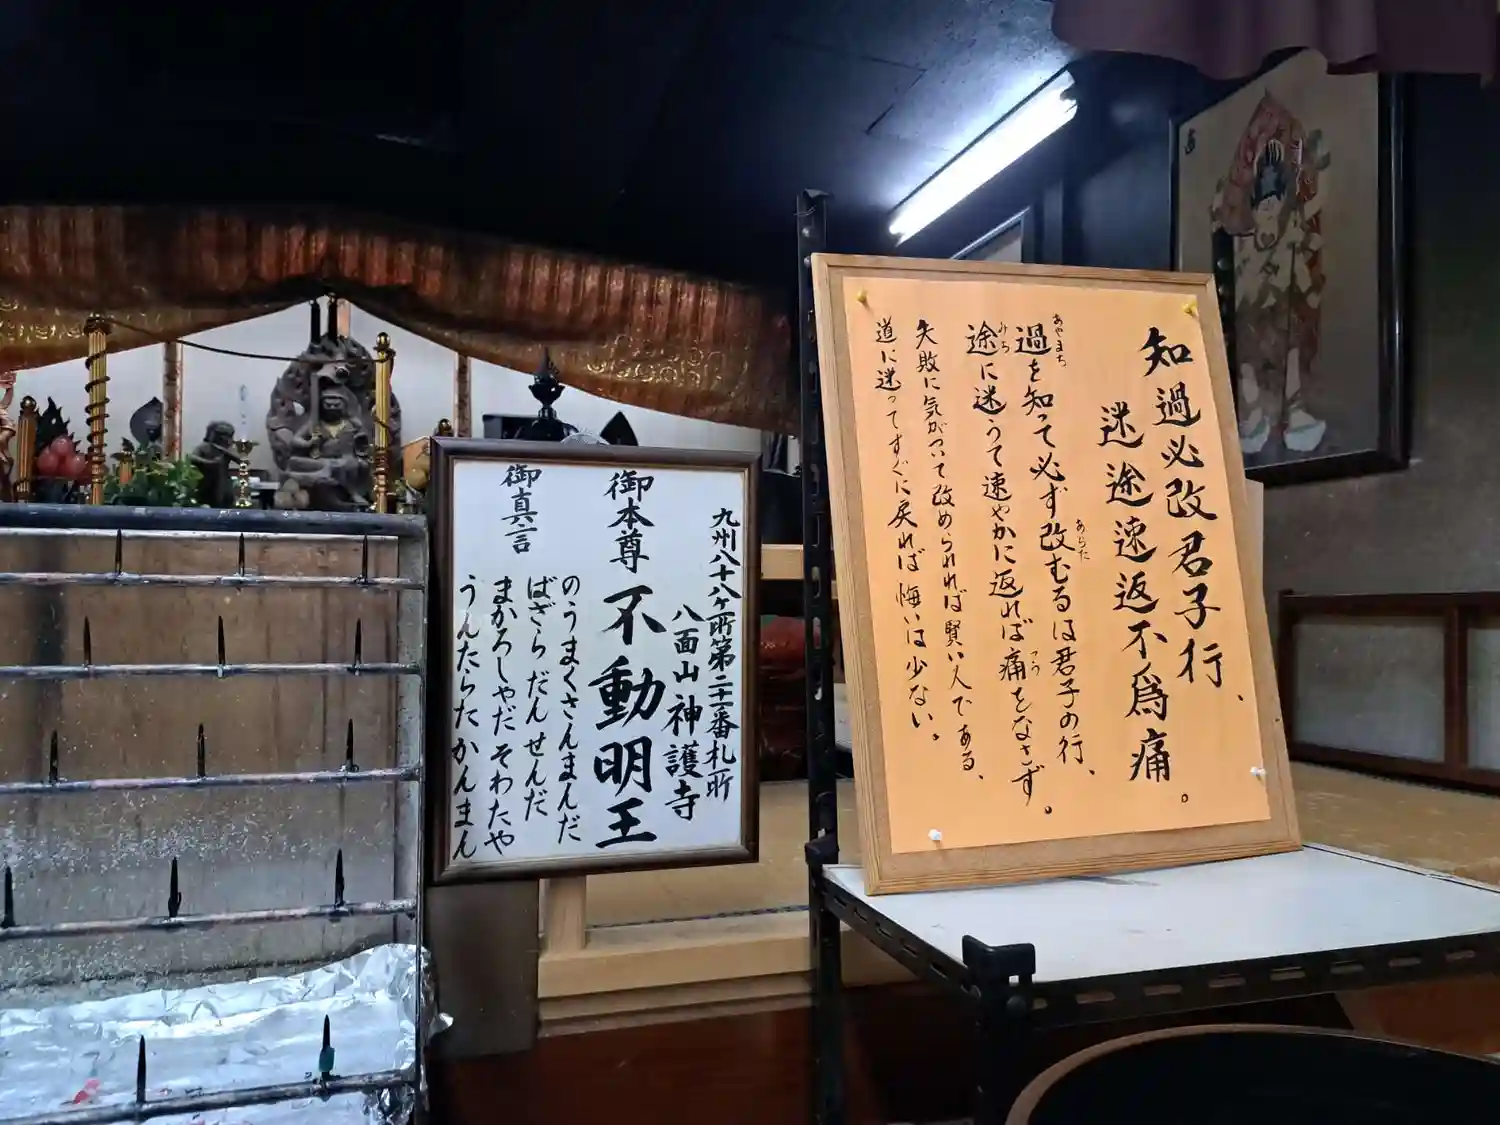 知過必改君子行、
迷途速返不爲痛。
過を知って必ず改むるは君子の行、
あやまち
あらた
途に迷うて速やかに返れば痛をなさず。
みち
つう
失敗に気がついて改められれば賢い人である、
道に迷ってすぐに戻れば悔いは少ない。
九州八十八ヶ所第二十一番札所
八面山神護寺
御本尊不動明王
御真言
のうまくさんまんだ
ばざらだんせんだ
まかろしゃだそわたや
うんたらたかんまん